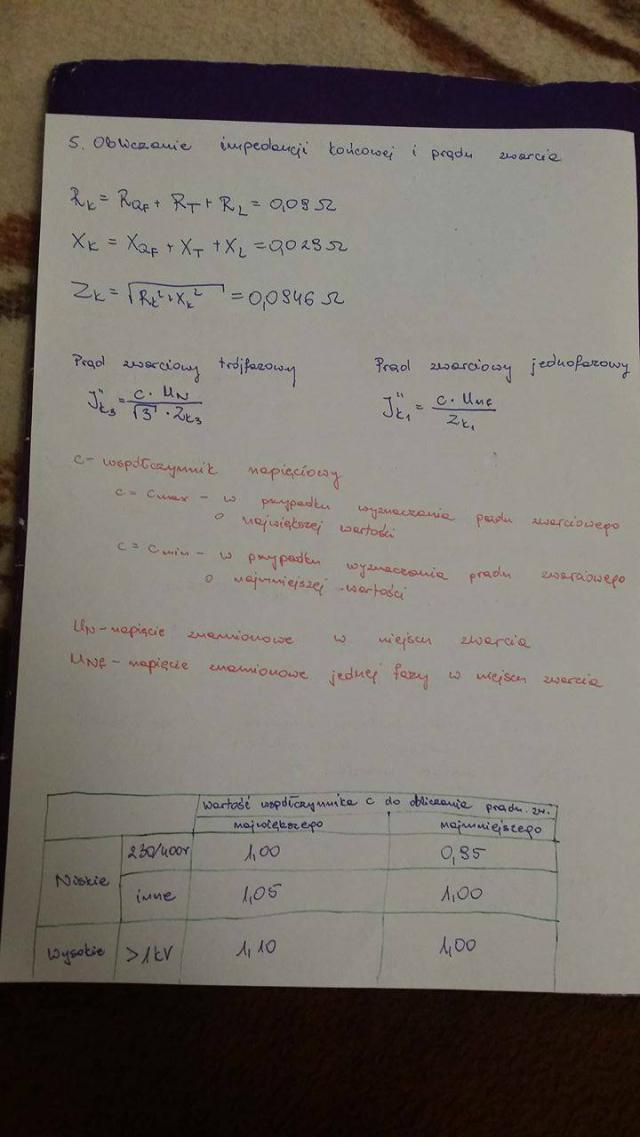 5. Obliczanie impedancji końcowej i prądu zwarcia
R_k = R_QF + R_T + R_L = 0,09 Ω
X_k = X_QF + X_T + X_L = 0,029 Ω
Z_k = √(R_k² + X_k²) = 0,0946 Ω
Prąd zwarciowy trójfazowy
I"_k3 = c · U_N / (√3 · Z_k3)
Prąd zwarciowy jednofazowy
I"_k1 = c · U_Nf / Z_k1
c - współczynnik napięciowy
c = c max - w przypadku wyznaczania prądu zwarciowego
o największej wartości
c = c min - w przypadku wyznaczania prądu zwarciowego
o najmniejszej wartości
U_N - napięcie znamionowe w miejscu zwarcia
U_Nf - napięcie znamionowe jednej fazy w miejscu zwarcia
Wartość współczynnika c do obliczania prądu zw.
największego najmniejszego
Niskie 230/400V 1,00 0,95
inne 1,05 1,00
Wysokie >1kV 1,10 1,00